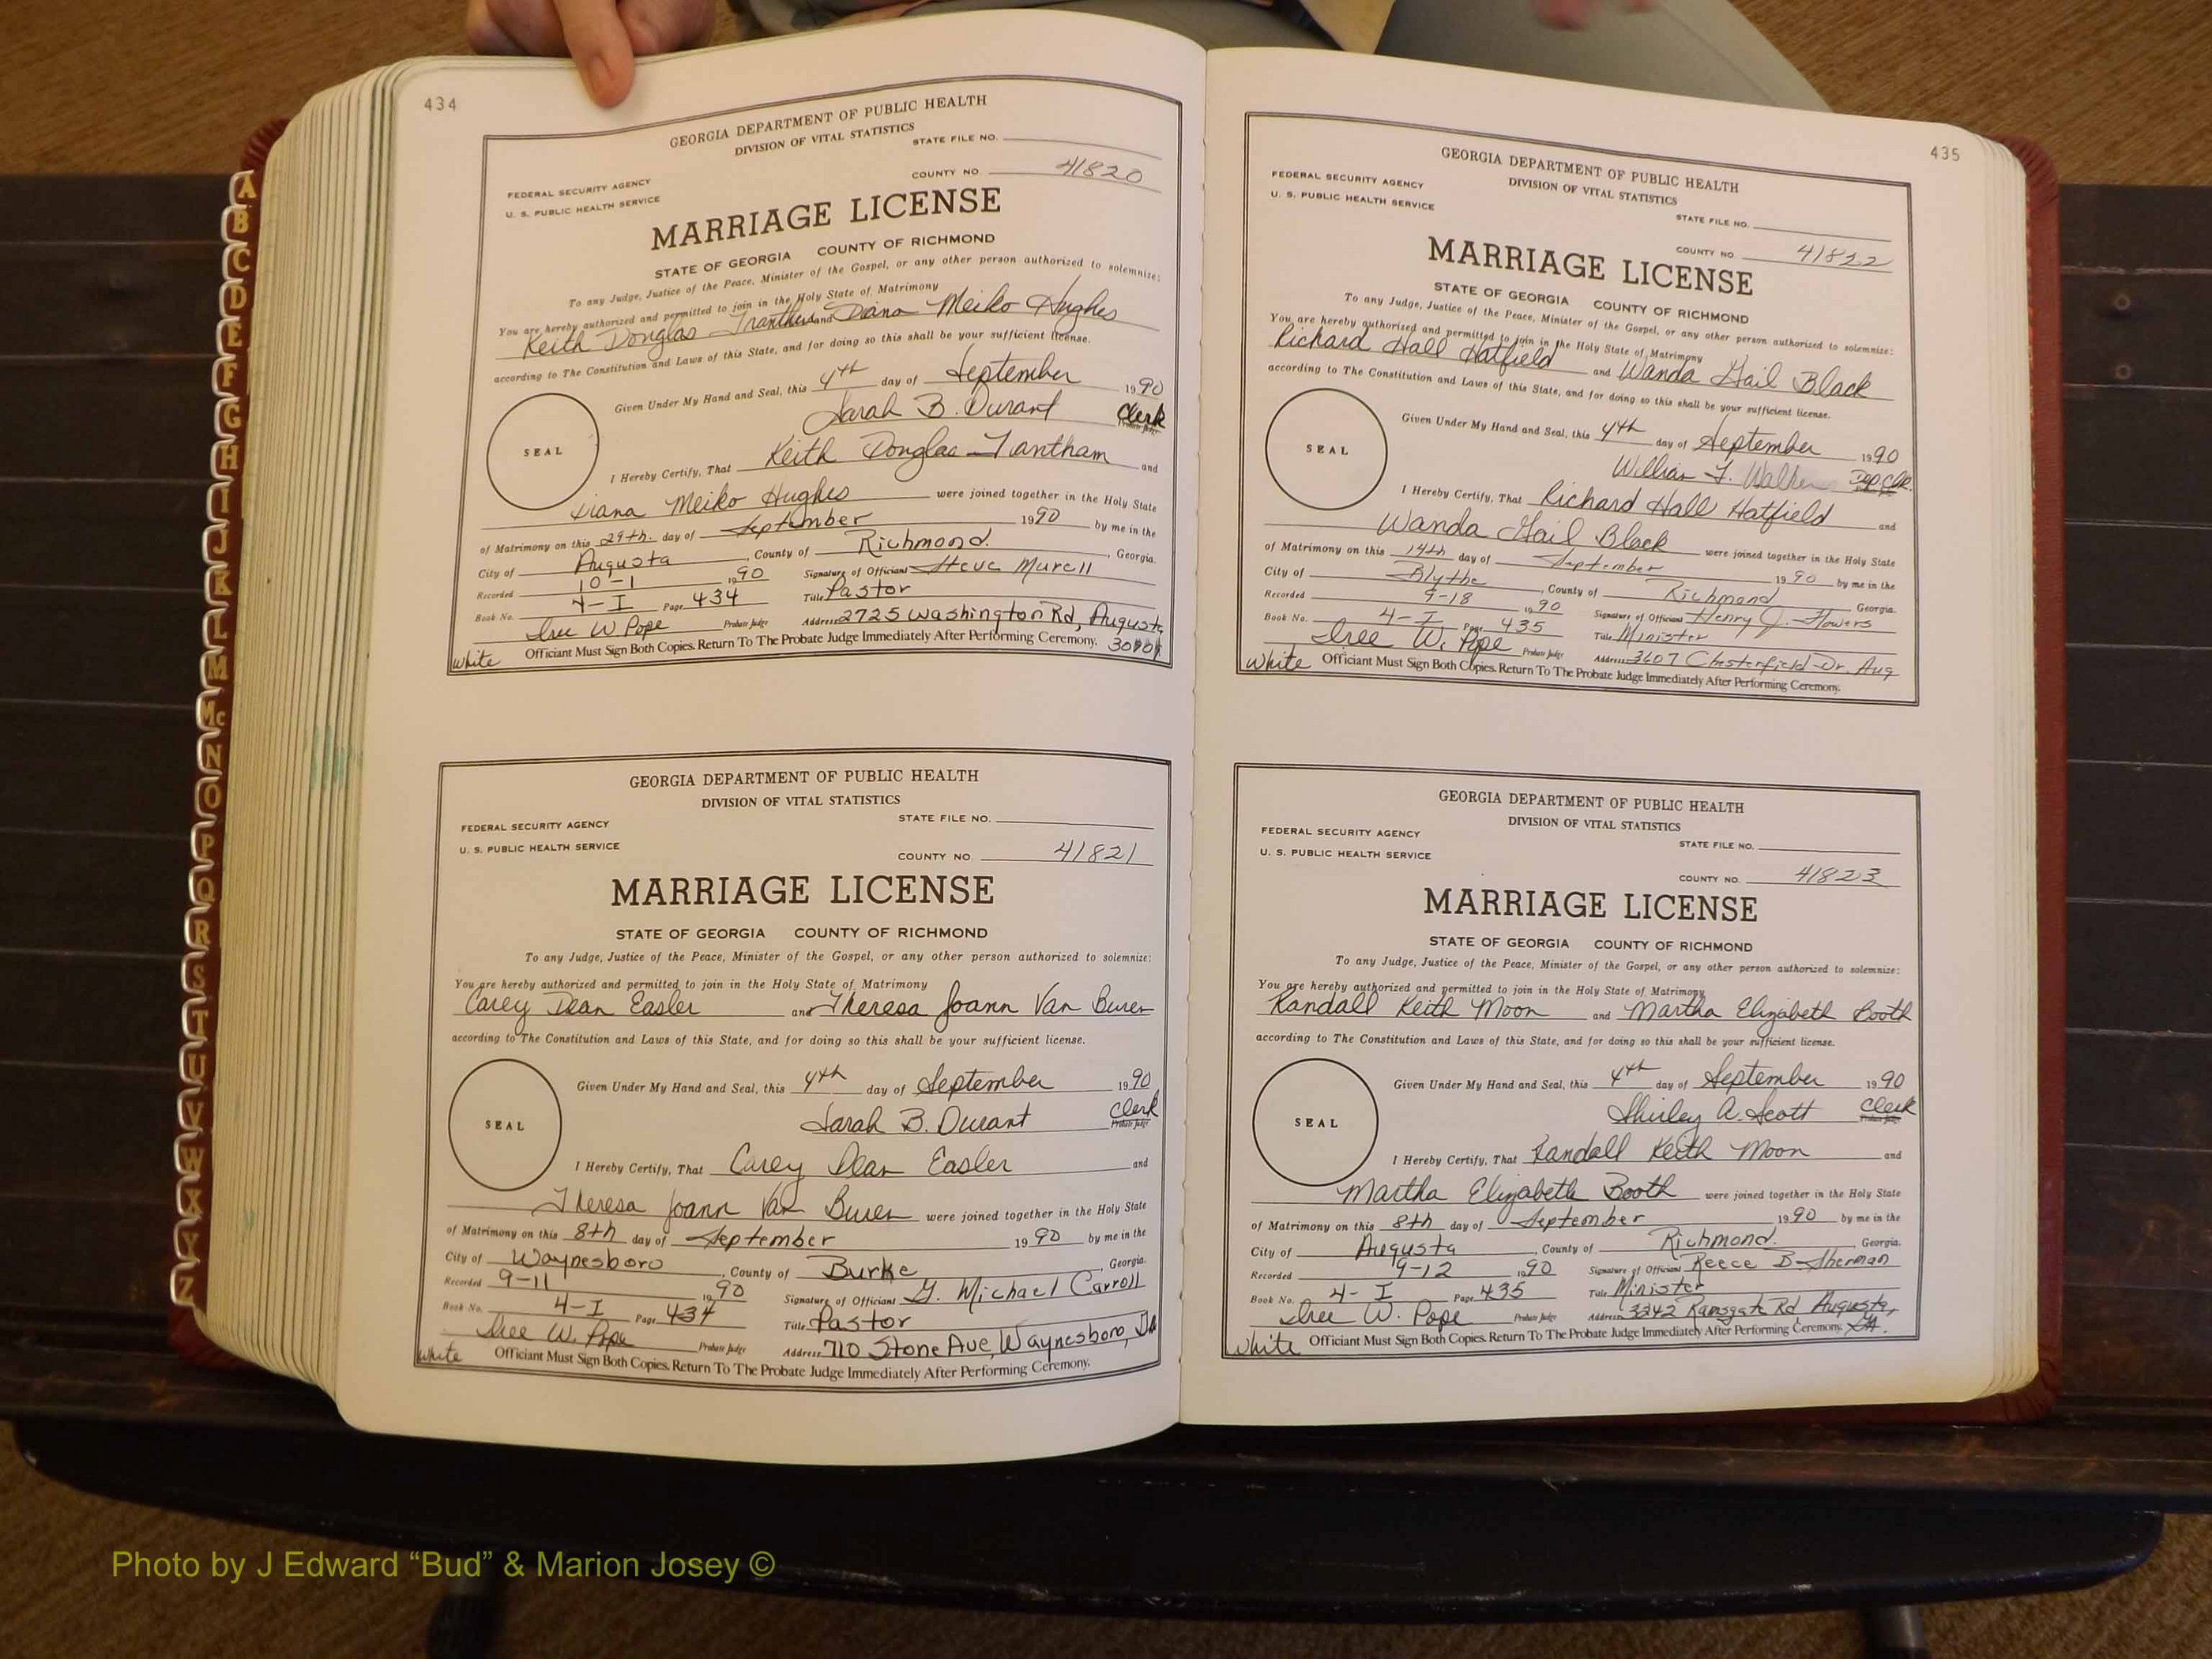 434
GEORGIA DEPARTMENT OF PUBLIC HEALTH
DIVISION OF VITAL STATISTICS
STATE FILE NO.
COUNTY NO 41820
FEDERAL SECURITY AGENCY
U. S. PUBLIC HEALTH SERVICE
MARRIAGE LICENSE
STATE OF GEORGIA COUNTY OF RICHMOND
To any Judge, Justice of the Peace, Minister of the Gospel, or any other person authorized to solemnize:
You are hereby authorized and permitted to join in the Holy State of Matrimony
Keith Douglas and Diana Meiko Hughes
according to The Constitution and Laws of this State, and for doing so this shall be your sufficient license.
Given Under My Hand and Seal, this 4th day of September 1990
Sarah B. Durant Clerk
Probate Judge
SEAL
I Hereby Certify, That Keith Douglas Trantham and
Diana Meiko Hughes were joined together in the Holy State
of Matrimony on this 29th. day of September 1990 by me in the
City of Augusta, County of Richmond, Georgia.
Recorded 10-1 1990 Signature of Officiant Steve Murell
Book No. 4-I Page 434 Title Pastor
Isee W Pope Probate Judge Address 2725 Washington Rd, Augusta
White Officiant Must Sign Both Copies. Return To The Probate Judge Immediately After Performing Ceremony.
GEORGIA DEPARTMENT OF PUBLIC HEALTH
DIVISION OF VITAL STATISTICS
STATE FILE NO.
FEDERAL SECURITY AGENCY
U. S. PUBLIC HEALTH SERVICE
COUNTY NO. 41821
MARRIAGE LICENSE
STATE OF GEORGIA COUNTY OF RICHMOND
To any Judge, Justice of the Peace, Minister of the Gospel, or any other person authorized to solemnize:
You are hereby authorized and permitted to join in the Holy State of Matrimony
Carey Dean Easler and Theresa Joann Van Buren
according to The Constitution and Laws of this State, and for doing so this shall be your sufficient license.
Given Under My Hand and Seal, this 4th day of September 1990
Sarah B. Durant Clerk
Probate Judge
SEAL
I Hereby Certify, That Carey Dean Easler and
Theresa Joann Van Buren were joined together in the Holy State
of Matrimony on this 8th day of September 1990 by me in the
City of Waynesboro, County of Burke, Georgia.
Recorded 9-11 1990 Signature of Officiant G. Michael Carroll
Book No. 4-I Page 434 Title Pastor
Isee W. Pope Probate Judge Address 710 Stone Ave, Waynesboro, GA
White Officiant Must Sign Both Copies. Return To The Probate Judge Immediately After Performing Ceremony.
435
GEORGIA DEPARTMENT OF PUBLIC HEALTH
DIVISION OF VITAL STATISTICS
FEDERAL SECURITY AGENCY
U. S. PUBLIC HEALTH SERVICE
STATE FILE NO.
COUNTY NO. 41822
MARRIAGE LICENSE
STATE OF GEORGIA COUNTY OF RICHMOND
To any Judge, Justice of the Peace, Minister of the Gospel, or any other person authorized to solemnize:
You are hereby authorized and permitted to join in the Holy State of Matrimony
Richard Hall Hatfield and Wanda Gail Black
according to The Constitution and Laws of this State, and for doing so this shall be your sufficient license.
Given Under My Hand and Seal, this 4th day of September 1990
William Dep. Clk.
SEAL
I Hereby Certify, That Richard Hall Hatfield and
Wanda Gail Black were joined together in the Holy State
of Matrimony on this 14th day of September 1990 by me in the
City of Blythe, County of Richmond, Georgia.
Recorded 9-18 1990 Signature of Officiant Henry J. Flowers
Book No. 4-I Page 435 Title Minister
Isee W. Pope Probate Judge Address 3607 Chesterfield Dr. Aug
White Officiant Must Sign Both Copies. Return To The Probate Judge Immediately After Performing Ceremony.
GEORGIA DEPARTMENT OF PUBLIC HEALTH
DIVISION OF VITAL STATISTICS
FEDERAL SECURITY AGENCY
U. S. PUBLIC HEALTH SERVICE
STATE FILE NO.
COUNTY NO. 41823
MARRIAGE LICENSE
STATE OF GEORGIA COUNTY OF RICHMOND
To any Judge, Justice of the Peace, Minister of the Gospel, or any other person authorized to solemnize:
You are hereby authorized and permitted to join in the Holy State of Matrimony
Randall Keith Moon and Martha Elizabeth Booth
according to The Constitution and Laws of this State, and for doing so this shall be your sufficient license.
Given Under My Hand and Seal, this 4th day of September 1990
Shirley A. Scott Clerk
Probate Judge
SEAL
I Hereby Certify, That Randall Keith Moon and
Martha Elizabeth Booth were joined together in the Holy State
of Matrimony on this 8th day of September 1990 by me in the
City of Augusta, County of Richmond, Georgia.
Recorded 9-12 1990 Signature of Officiant Reece D Sherman
Book No. 4-I Page 435 Title Minister
Isee W. Pope Probate Judge Address 3242 Ramsgate Rd Augusta,
White Officiant Must Sign Both Copies. Return To The Probate Judge Immediately After Performing Ceremony. GA.
A
B
C
D
E
F
G
H
I
J
K
L
M
Mc
N
O
P
Q
R
S
T
U
V
W
X
Y
Z
Photo by J Edward “Bud” & Marion Josey ©